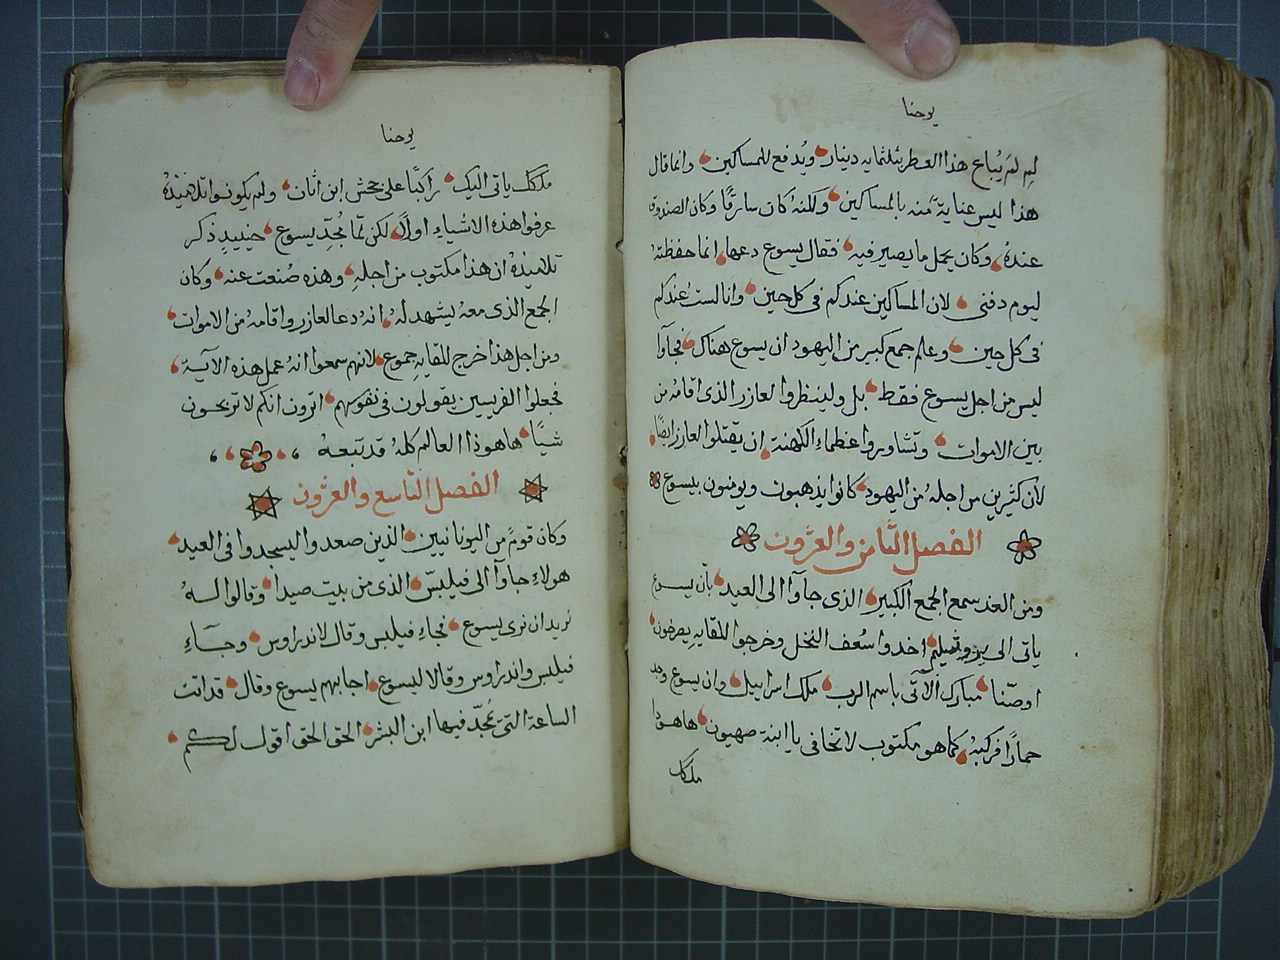 يوحنا
لِمِ لَمْ يُباع هذا العطر بثلثمايه دينار ويُدفع للمساكين وانما قال
هذا ليس عناية منه بالمساكين ولكنه كان سارقًا وكان الصندوق
عندهُ وكان يحمل ما يصير فيه فقال يسوع دعها انما حفظتهُ
ليوم دفني لان المساكين عندكم في كل حين وانا لستُ عندكم
في كل حين وعلم جمع كبير من اليهود ان يسوع هناك فجآوا
ليس من اجل يسوع فقط بل ولينظروا لعازر الذى اقامهُ من
بين الاموات وتشاوروا عظماء الكهنة ان يقتلوا لعازر ايضًا
لان كثيرين من اجلهُ من اليهود كانوا يذهبون ويومنون بيسوع
الفصل الثامن والعشرون
ومن الغد سمع الجمع الكبير الذى جآوا الى العيد بأن يسوع
ياتى الى يروشليم اخدوا سُعف النخل وخرجوا للقايهِ يصرخون
اوصنّا مبارك الآتى باسم الرب ملك اسراييل وان يسوع وجد
حمارًا فركبهُ كما هو مكتوب لا تخافى يا ابنة صهيون هاهوذا
ملكك
يوحنا
ملكك ياتى اليك راكبًا على جحش ابن اتان ولم يكونوا تلاميذهُ
عرفوا هذه الاشياء اولاً لكن لمّا مُجِّد يسوع حينيدٍ ذكر
تلاميذهُ ان هذا مكتوب من اجلهِ وهذه صُنعت عنه وكان
الجمع الذى معهُ يشهد لهُ انهُ دعا لعازر واقامهُ من الاموات
ومن اجل هذا خرج للقايهِ جموع لانهم سمعوا انهُ عمل هذه الآية
فجعلوا الفريسين يقولون في نفوسهم اترون انكم لا تربحون
شيًا هاهوذا العالم كلهُ قد تبعهُ
الفصل التاسع والعشرون
وكان قومٌ من اليونانيين الذين صعدوا ليسجدوا في العيد
هولاء جاوآ الى فيلبسّ الذى من بيت صيدا وقالوا لهُ
نريد ان نرى يسوع فجاء فيلبس وقال لاندراوس وجآء
فيلبس واندراوس وقالا ليسوع اجابهم يسوع وقال قد اتت
الساعة التى يُمجّد فيها ابن البشر الحق الحق اقول لكم